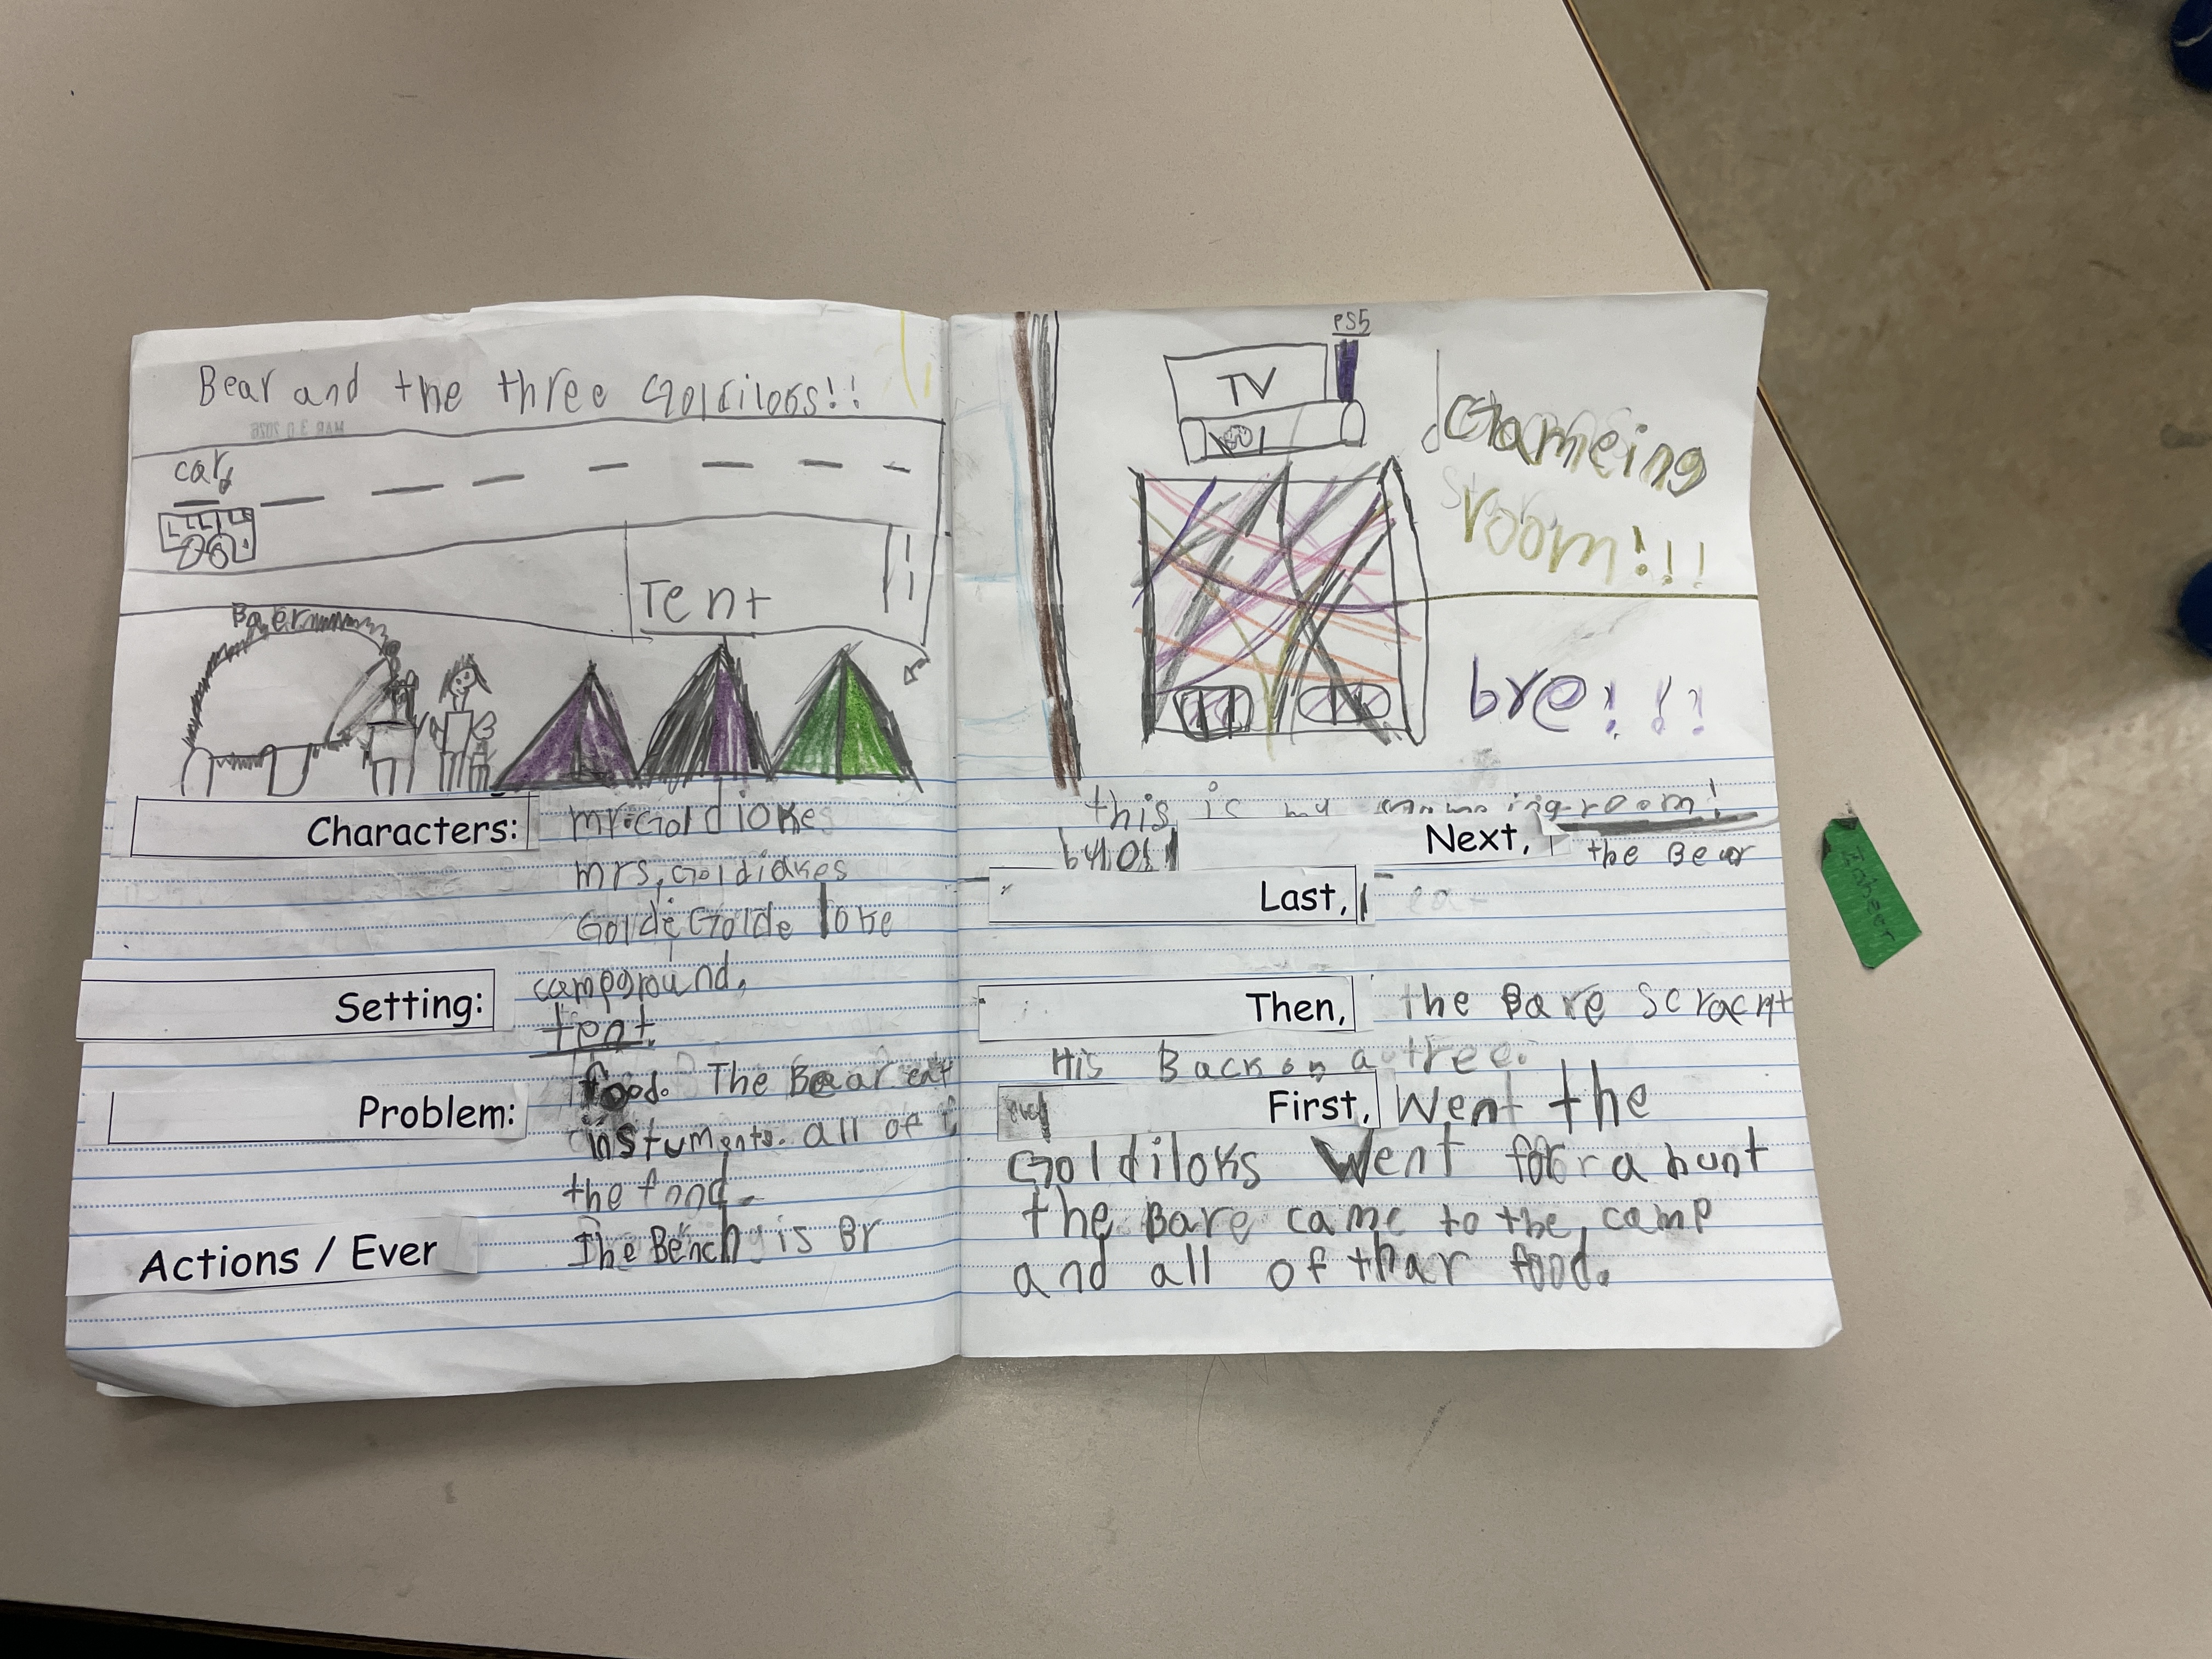 Bear and the three Goldiloks!!
MAR 3 0 2026
car
Tent
Baer
Characters: mr.Goldiokes
mrs,Goldiakes
Golde Golde loke
Setting: campground,
tent.
Problem: food. The Bear eat
instuments. all of
the food.
Actions / Ever The Bench is Br
PS5
TV
Gameing
room!!!
bre!!!
this is my room!
Next, the Bear
Last, eat
Then, the Bare Scracht
His Back on a tree.
First, Went the
Goldiloks Went for a hunt
the Bare came to the camp
and all of thar food.